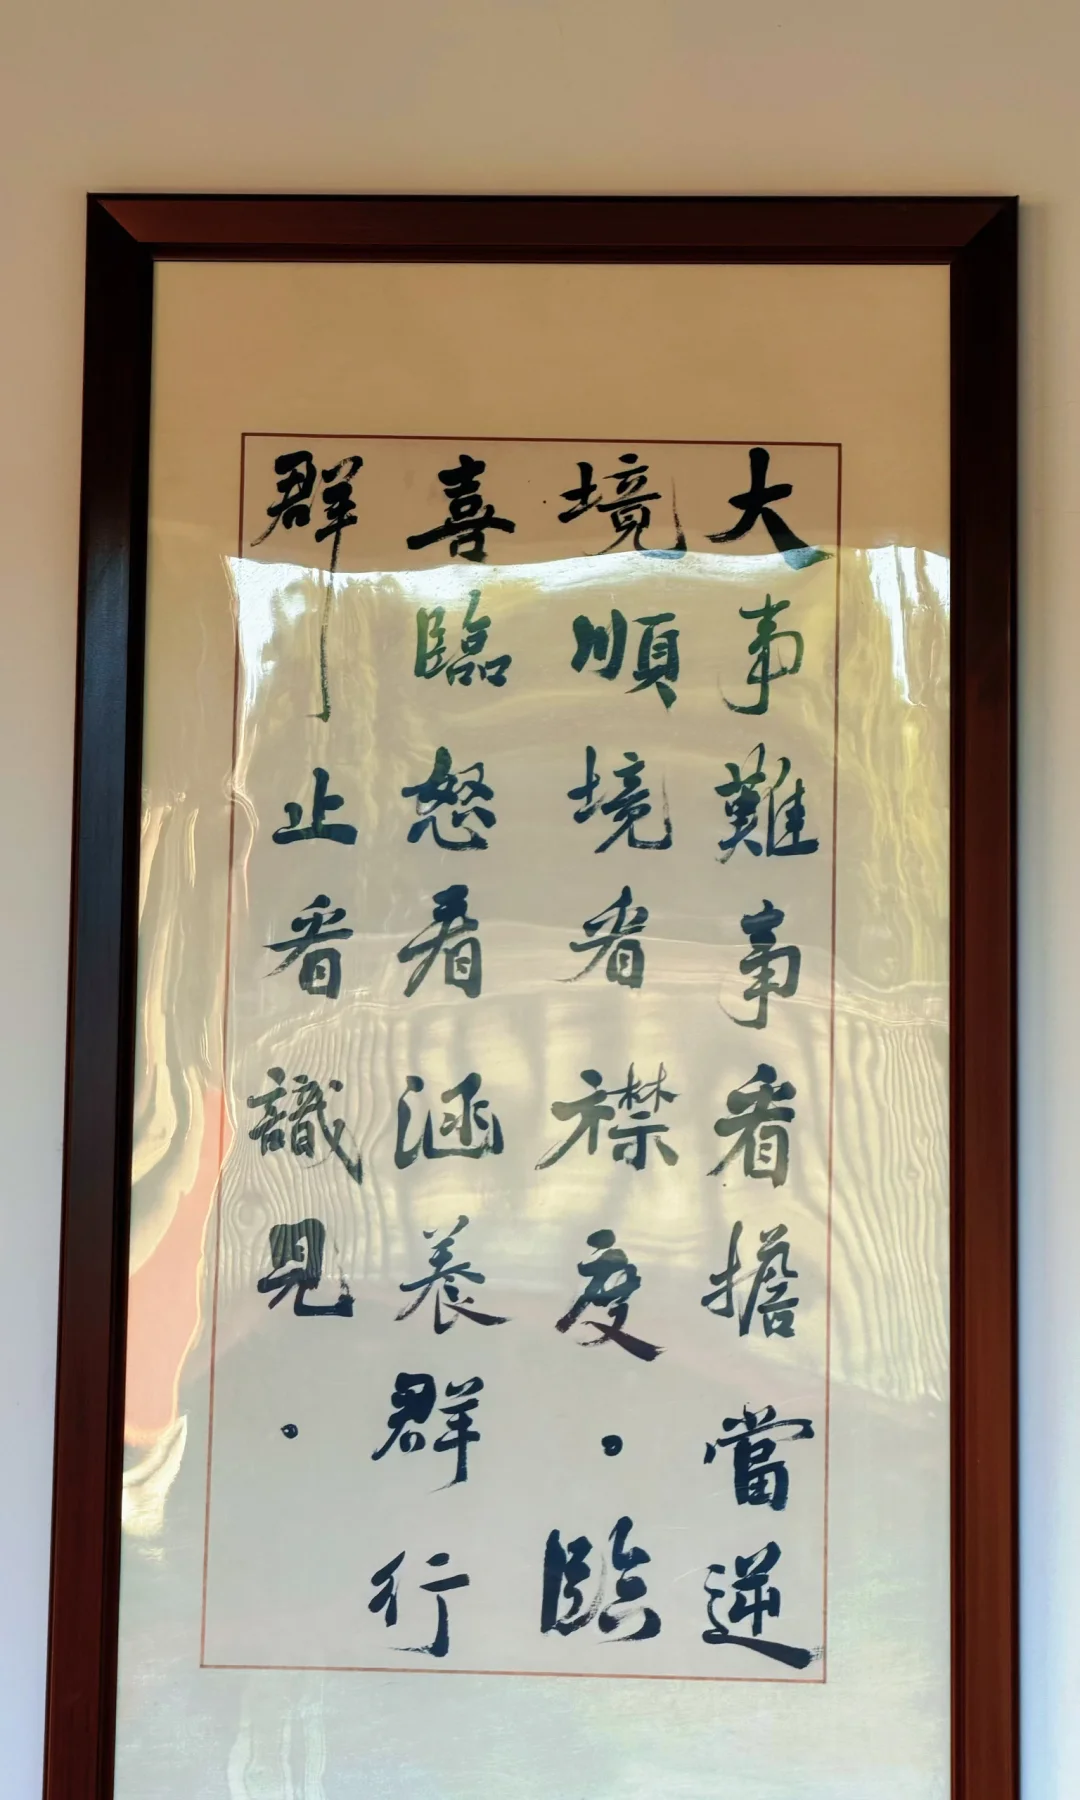 大事難事看擔當逆
境順境看襟度。臨
喜臨怒看涵養群行
群止看識見。